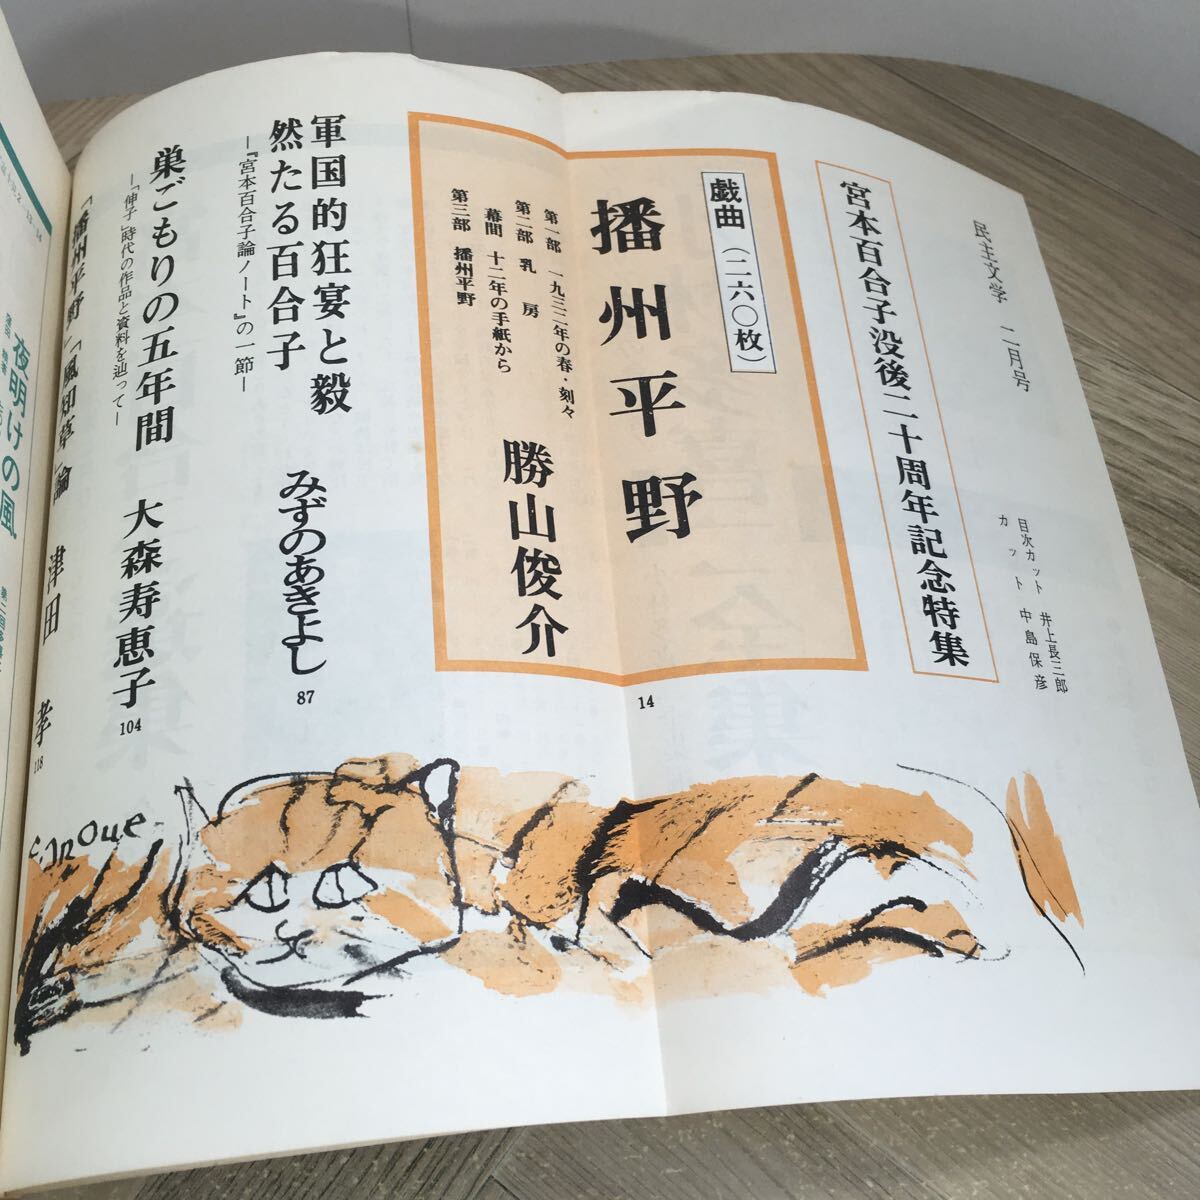 民主文学　二月号
目次カット　井上長三郎
カット　中島保彦
宮本百合子没後二十周年記念特集
戯曲（二六〇枚）
播州平野
第一部　一九三二年の春・刻々
第二部　乳房
幕間　十二年の手紙から
第三部　播州平野
勝山俊介
14
軍国的狂宴と毅
然たる百合子
―『宮本百合子論ノート』の一節―
みずのあきよし
87
巣ごもりの五年間
―「伸子」時代の作品と資料を辿って―
大森寿恵子
104
「播州平野」「風知草」論
津田　孝
118
Inoue
夜明けの風